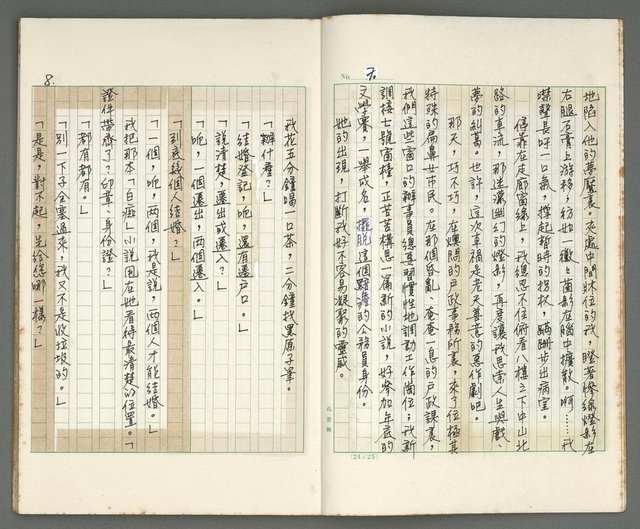 No. 7.
地陷入他的夢魘裏。夾處中間牀位的我，瞪著慘綠燈影在
右腿石膏上游移，彷如一徽之菌影在腦中擴散。啊……我
噤聲長吁一口氣，撑起暫時的拐杖，蹣跚步出病室。
停靠在走廊窗緣上，我總忍不住俯看八樓之下中山北
路的車流，那迷濛幽幻的燈影，再度讓我思索人生與戲、
夢的糾葛，也許，這次車禍是老天善意的惡作劇吧。
那天，巧不巧，在煩悶的戶政事務所裏，來了位極其
特殊的扁鼻女市民。在那個昏亂、奄奄一息的戶政課裏，
我們這些窗口的辦事員總要習慣性地調動工作崗位。我新
調接七號窗檯，正苦苦構思一篇新的小說，好參加年底的
文學獎，一舉成名，擺脫這個黯澹的公務員身份。
她的出現，打斷我好不容易凝聚的靈感。
孔雀牌
(24×25)
8.
我花五分鐘喝一口茶，二分鐘找黑原子筆。
「辦什麼？」
「結婚登記，呃，還有遷戶口。」
「說清楚，遷出或遷入？」
「呃，一個遷出，兩個遷入。」
「到底幾個人結婚？」
「一個，呃，兩個，我是說，兩個人才能結婚。」
我把那本「白痴」小說固在她看得最清楚的位置。「
證件帶齊了？印章、身份證？」
「都有都有。」
「別一下子全塞過來，我又不是收垃圾的。」
「是是，對不起，先給您哪一樣？」